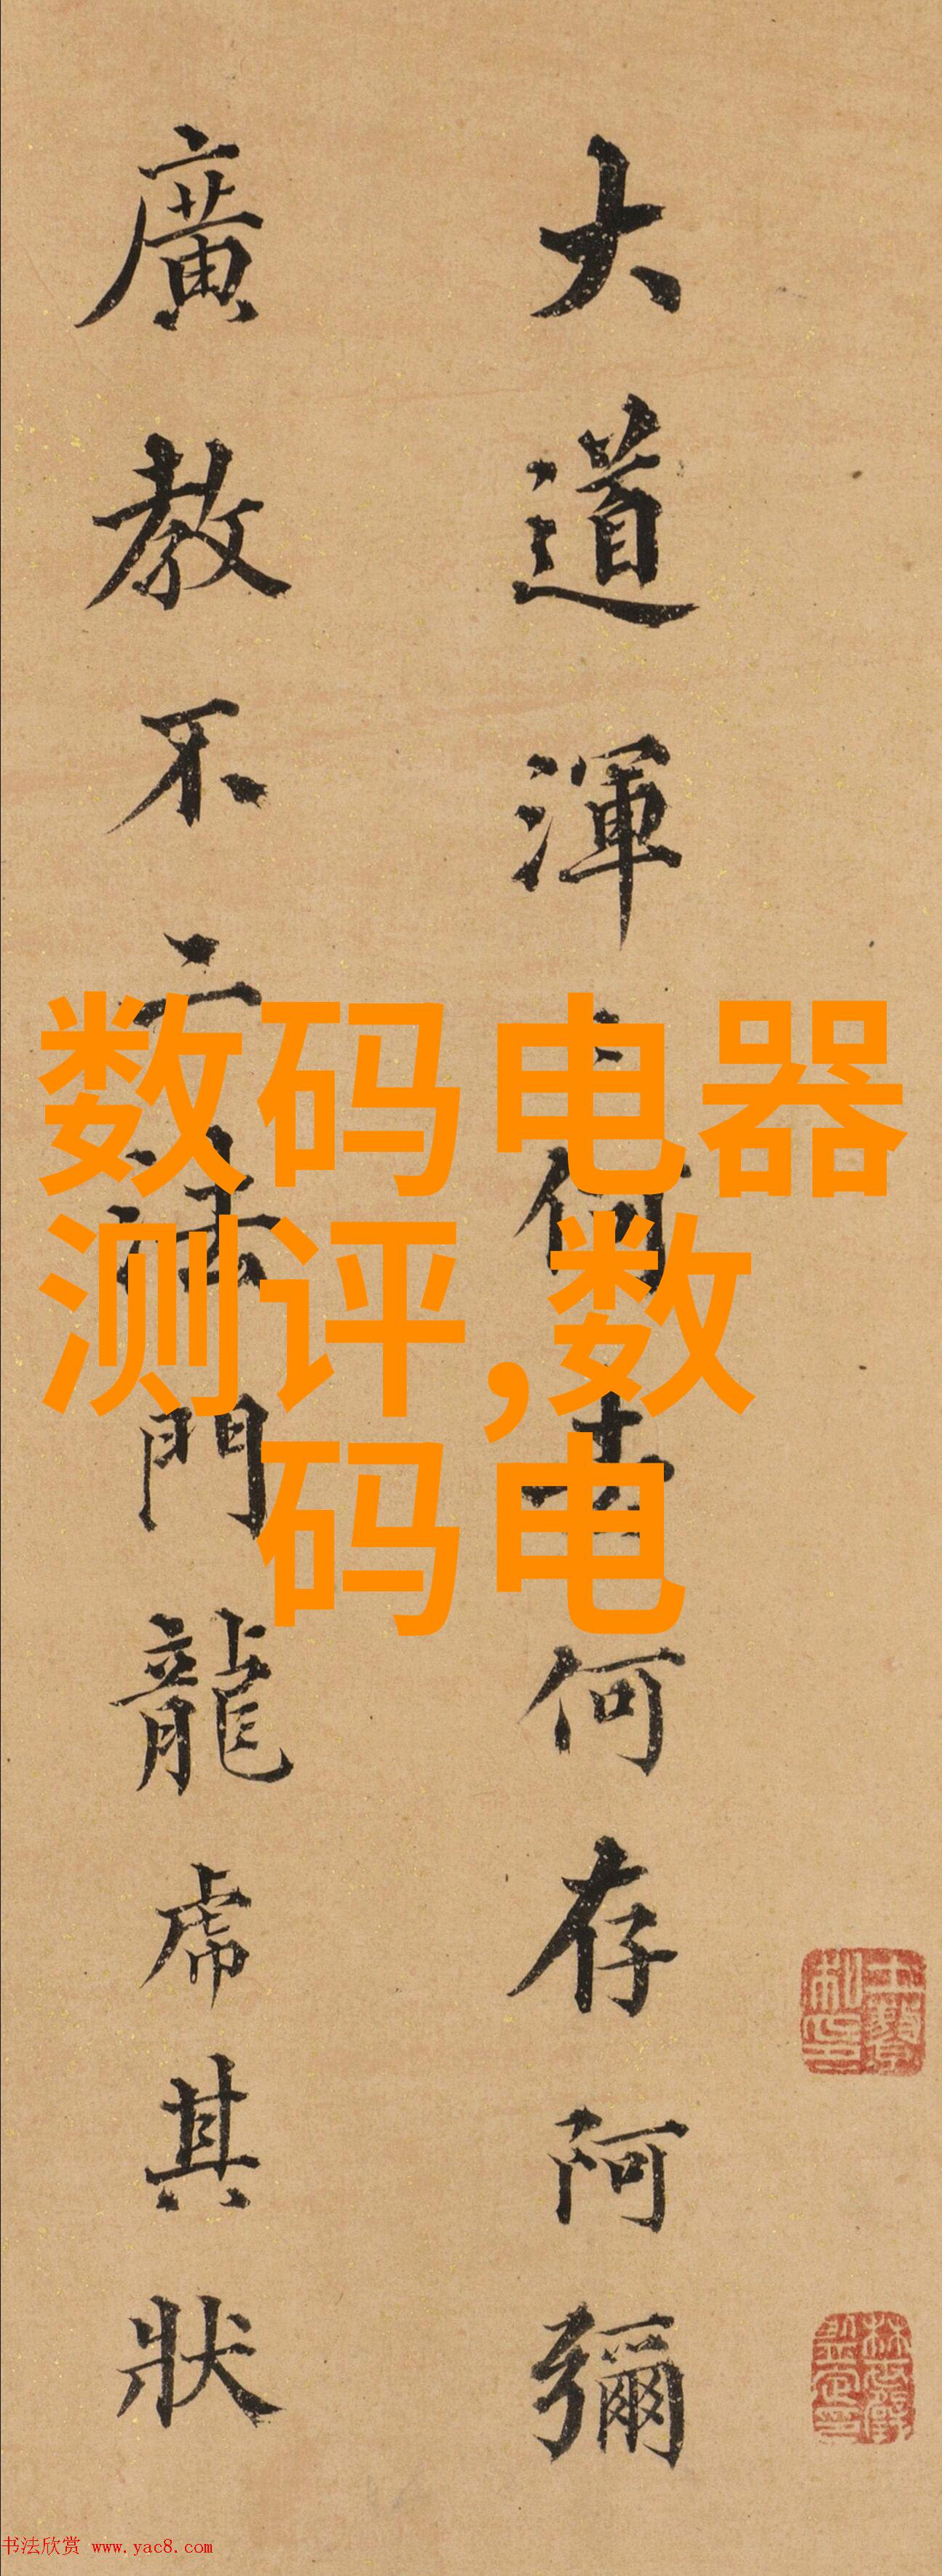 大道渾何何存阿彌
廣教不二法門龍虎其狀
数码电器
测评,数
码电
书法欣赏 www.yac8.com